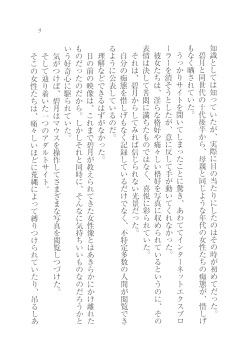 知識としては知っていたが、実際に目の当たりにしたのはその時が初めてだった。
碧月と同世代の十代後半から、母親と同じような年代の女性たちの痴態が、惜しげ
もなく晒されていた。
うっかりサイトを開いてしまったことに驚き、あわててインターネットエクスプロ
ーラーを消そうとしたが、意に手が動いてくれなかった。
彼女たちは、淫らな格好や痛々しい格好を写真に収められているというのに、その
表情は決して苦悶に満ちたものではなく、喜悦に彩られていた。
それは、碧月からしてみれば信じられない光景だった。
自分の痴態を惜しげもなく記録しているだけでなく、不特定多数の人間が閲覧でき
るように公表しているのだ。
理解などできるはずがなかった。
目の前の映像は、これまで碧月が教えられてきた女性像とはあきらかにかけ離れた
ものだったのだから。しかしそれと同時に、そんなに気持ちいいものなのだろうかと
いう好奇心に駆られていた。
気がつけば、碧月はマウスを操作してさまざまな写真を閲覧しつづけた。
そして辿り着いた、一つのアダルトサイト。
そこの女性たちは、痛々しいほどに荒縄によって縛りつけられていたり、吊るしあ
9